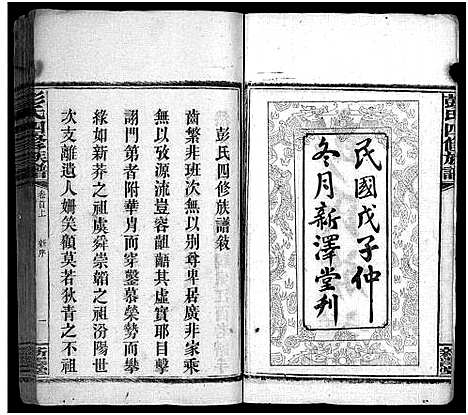 彭氏四修族譜
民國戊子仲
冬月新澤堂刋
彭氏四修族譜敘
齒繁非班次無以別尊卑居廣非家乘
無以攷源流豈容齟齬其虛實耶目擊
詡門第者附華胄而穿鑿慕榮勢而攀
緣如新莽之祖虞舜崇韜之祖汾陽世
次支離遺人姍笑顧莫若狄青之不祖
彭氏四修族譜
卷首上
新序
一
新澤堂